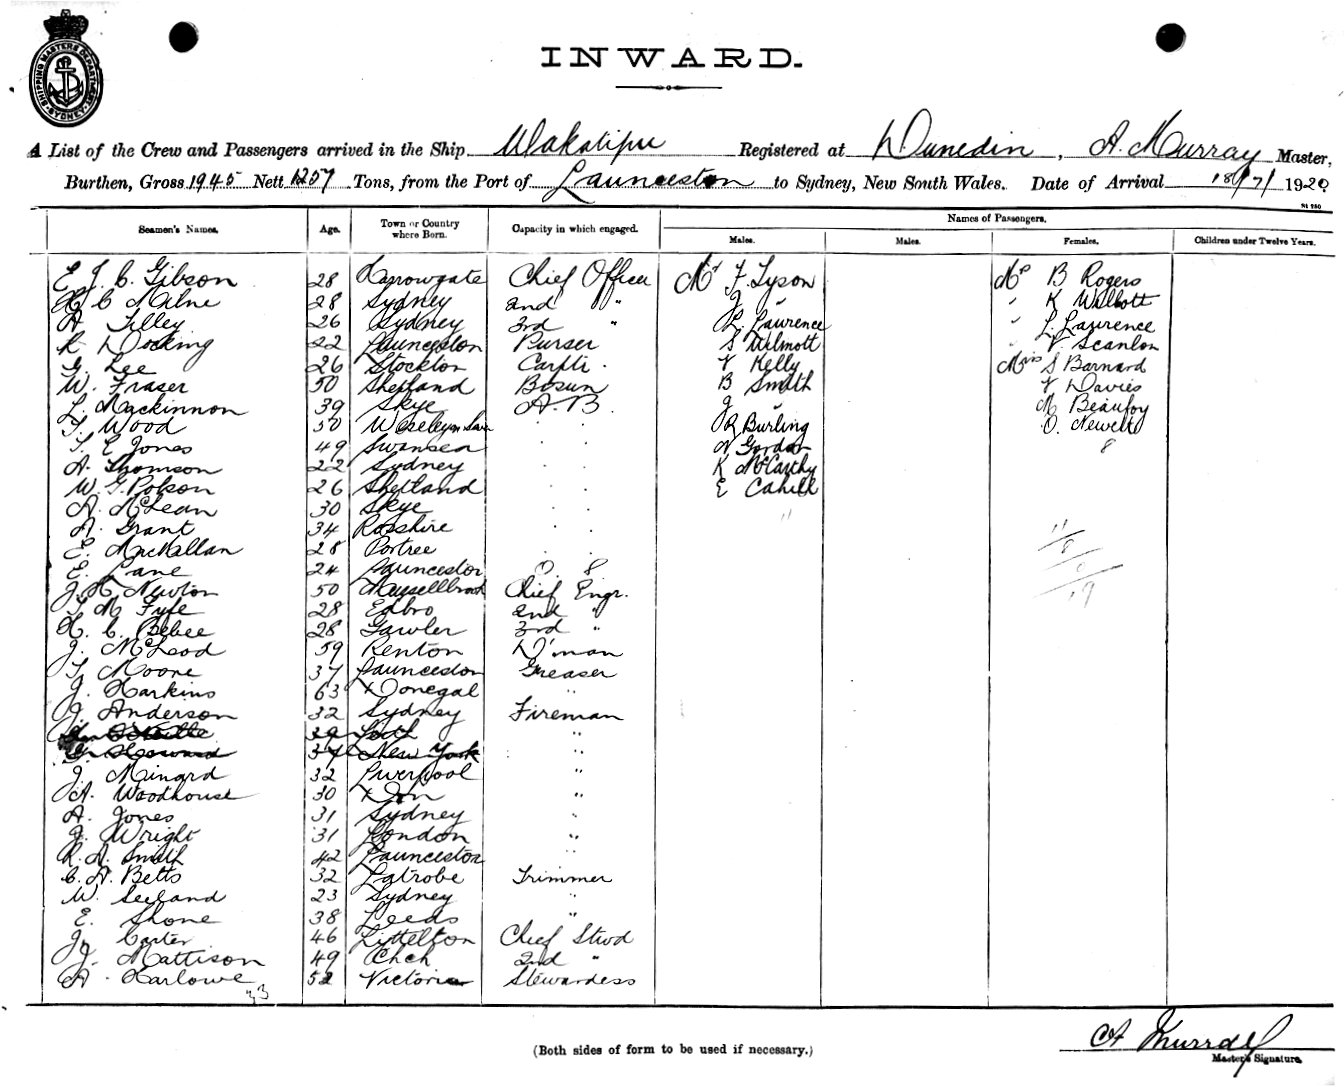 SHIPPING MASTERS DEPARTMENT SYDNEY
INWARD.
A List of the Crew and Passengers arrived in the Ship Wakatipu Registered at Dunedin, A. Murray Master,
Burthen, Gross 1945 Nett 1257 Tons, from the Port of Launceston to Sydney, New South Wales. Date of Arrival 18/7/1920
Seamen's Names. Age. Town or Country where Born. Capacity in which engaged. Names of Passengers.
Males. Males. Females. Children under Twelve Years.
E J. C. Gibson 28 Harrowgate Chief Officer Mr F. Tyson Ms B Rogers
H C Milne 28 Sydney 2nd " J " " K Walbott
A Tilley 26 Sydney 3rd " L. Laurence " L. Lawrence
R Docking 22 Launceston Purser S Wilmott " V Scanlon
G. Lee 26 Stockton Carptr. V Kelly Mrs S Barnard
W. Fraser 50 Shetland Bosun B Smith V Davies
L. Mackinnon 39 Skye A.B. J " M Beaufoy
T. Wood 50 R Burling O. Newell
T. E Jones 49 Swansea A Gordon 8
A. Thomson 22 Sydney K McCarthy
W. G. Polson 26 Shetland E Cahill
A. McLean 30 Skye 11
A. Grant 34 Rosshire
E. MacKallan 28 Portree
E. Lane 24 Launceston O S
J. H. Newton 50 Mussellbrook Chief Engr.
T M Fyfe 28 Edbro 2nd "
H. C. Bebee 28 Gawler 3rd "
J. McLeod 59 Renton D'man
T. Moore 37 Launceston Greaser
J. Harkins 63 Donegal "
J. Anderson 32 Sydney Fireman
39 "
G. Howard 34 New York "
J. Mingard 32 Liverpool "
A. Woodhouse 30 Don "
A. Jones 31 Sydney "
J. Wright 31 London "
R. A. Smith 42 Launceston "
C. A. Betts 32 Latrobe Trimmer
W. Seeland 23 Sydney "
E. Shone 38 Leeds "
J. Carter 46 Littelton Chief Stwd
J. Mattison 49 Chch 2nd "
A. Harlowe 52 Victoria Stewardess
33
11
8
0
19
(Both sides of form to be used if necessary.)
A Murray
Master's Signature.